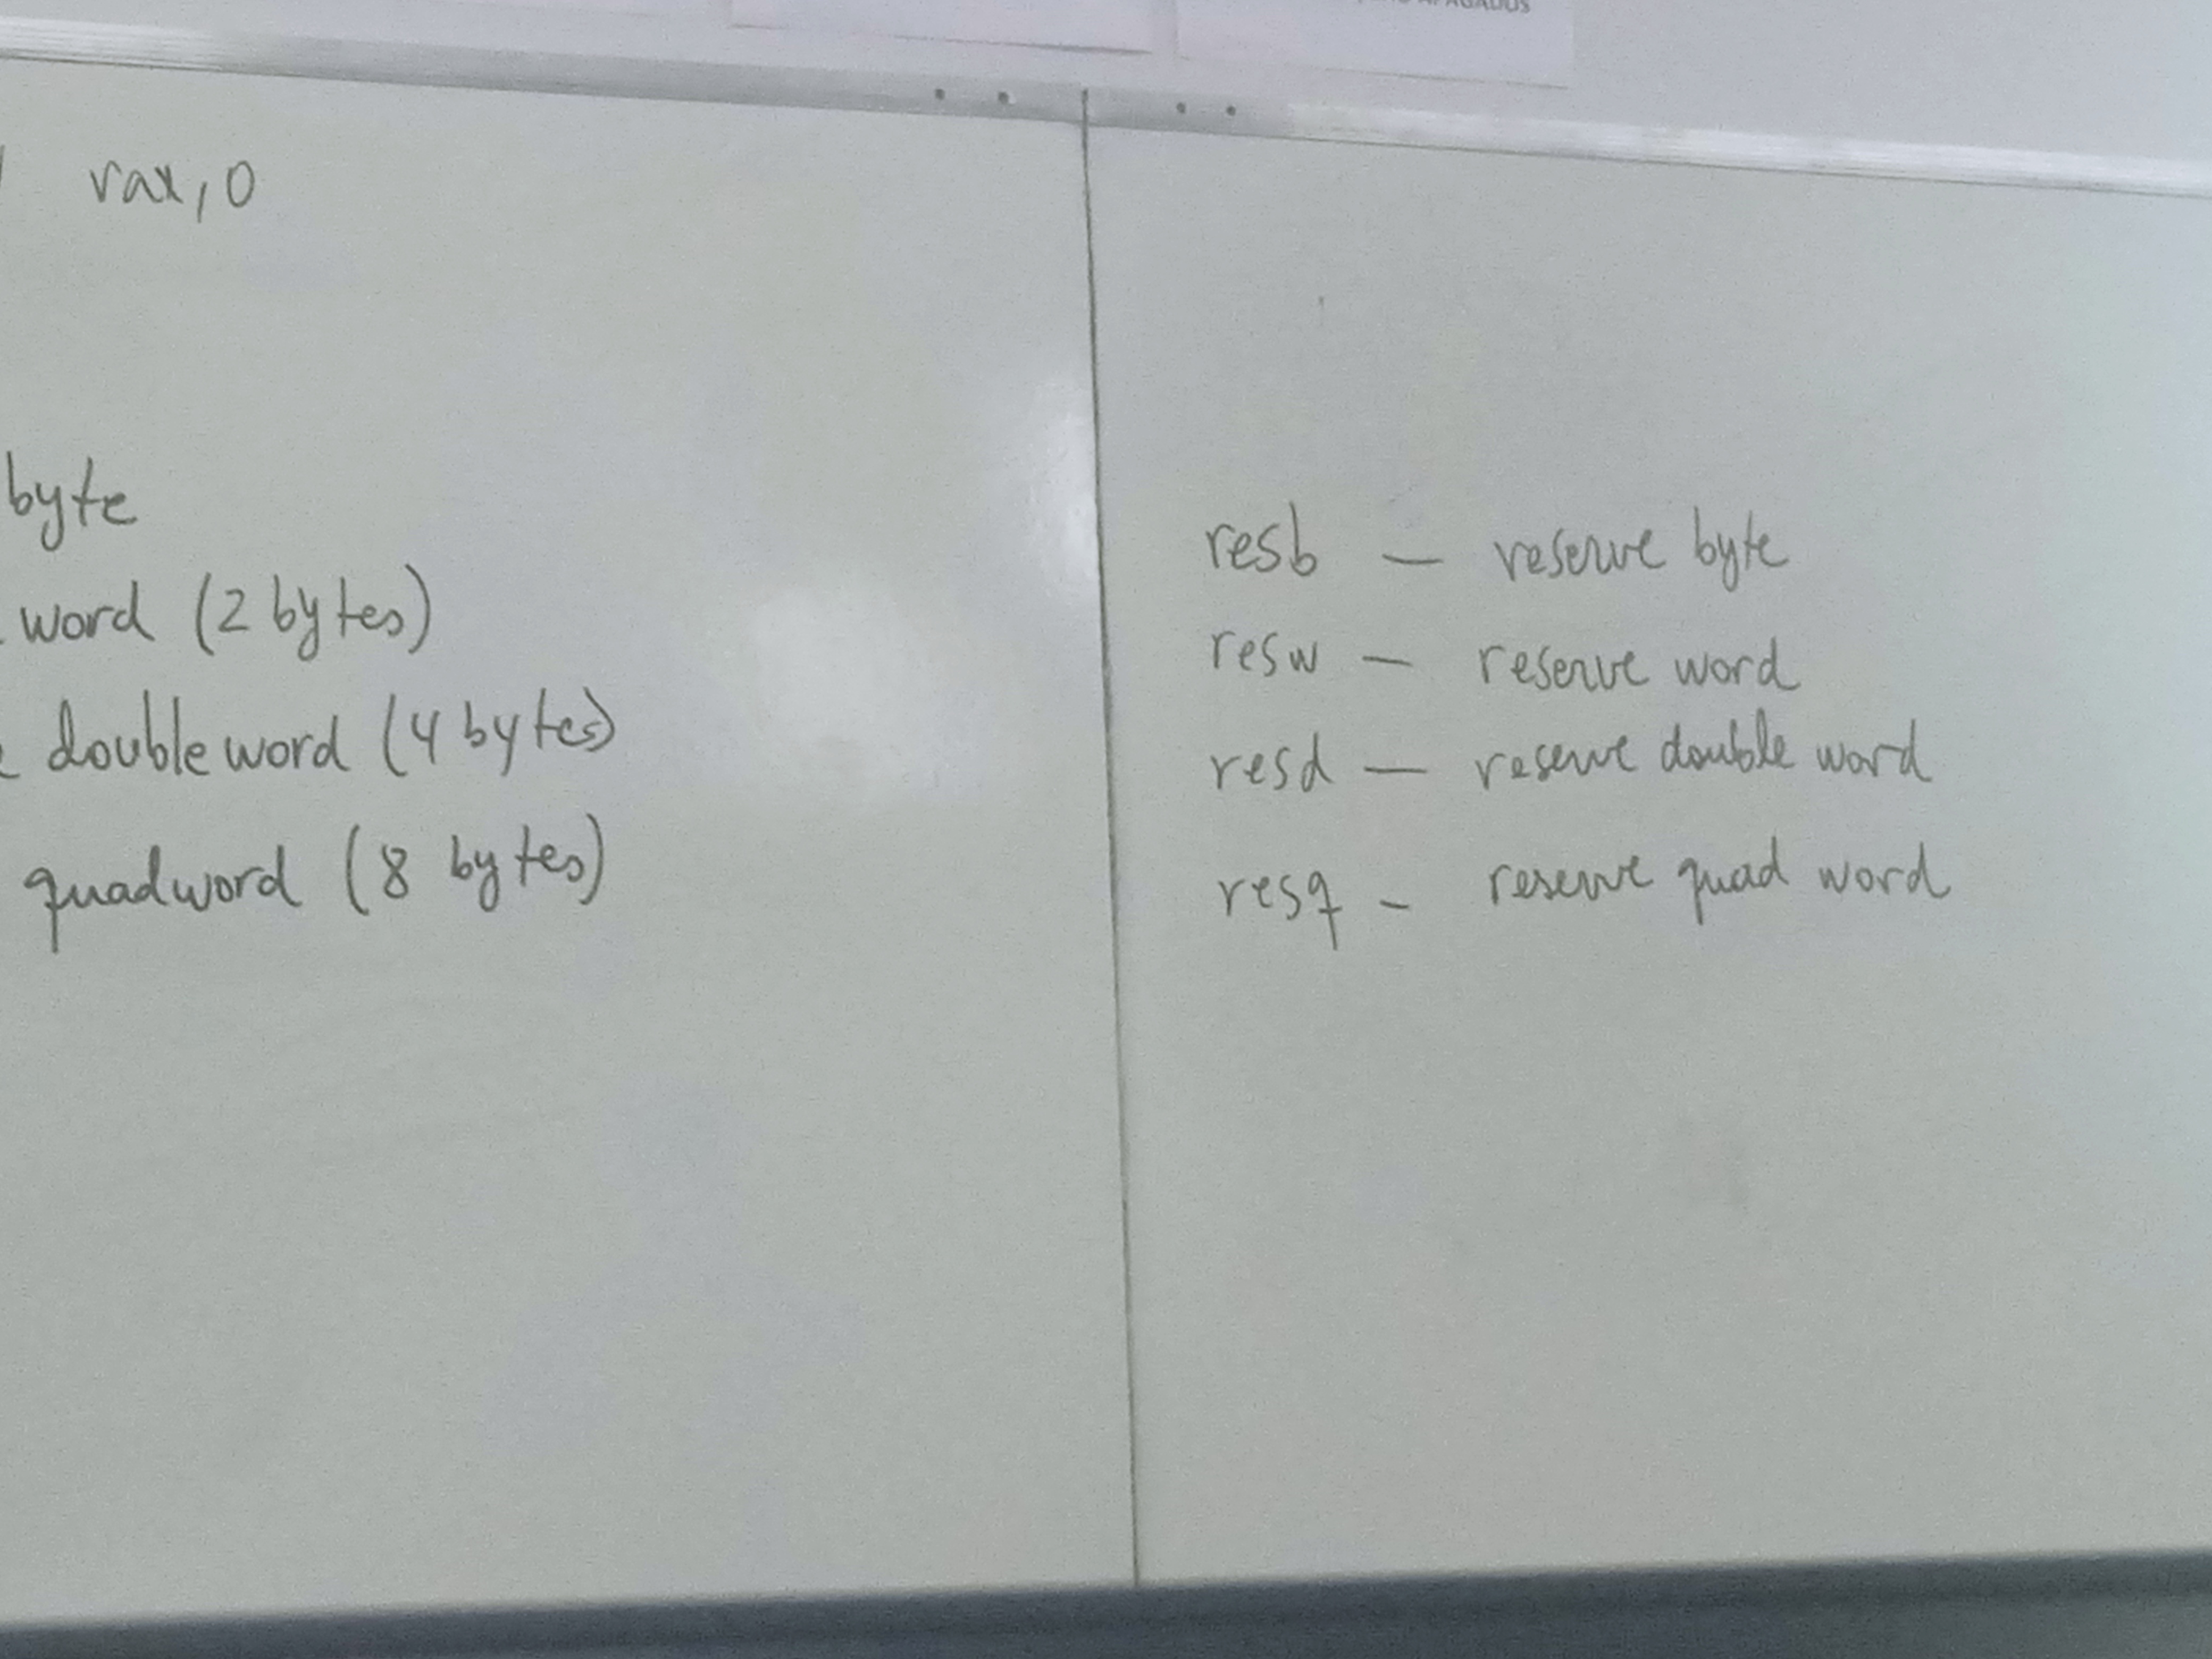 APAGADOS
rax, 0
byte
word (2 bytes)
double word (4 bytes)
quadword (8 bytes)
resb — reserve byte
resw — reserve word
resd — reserve double word
resq - reserve quad word